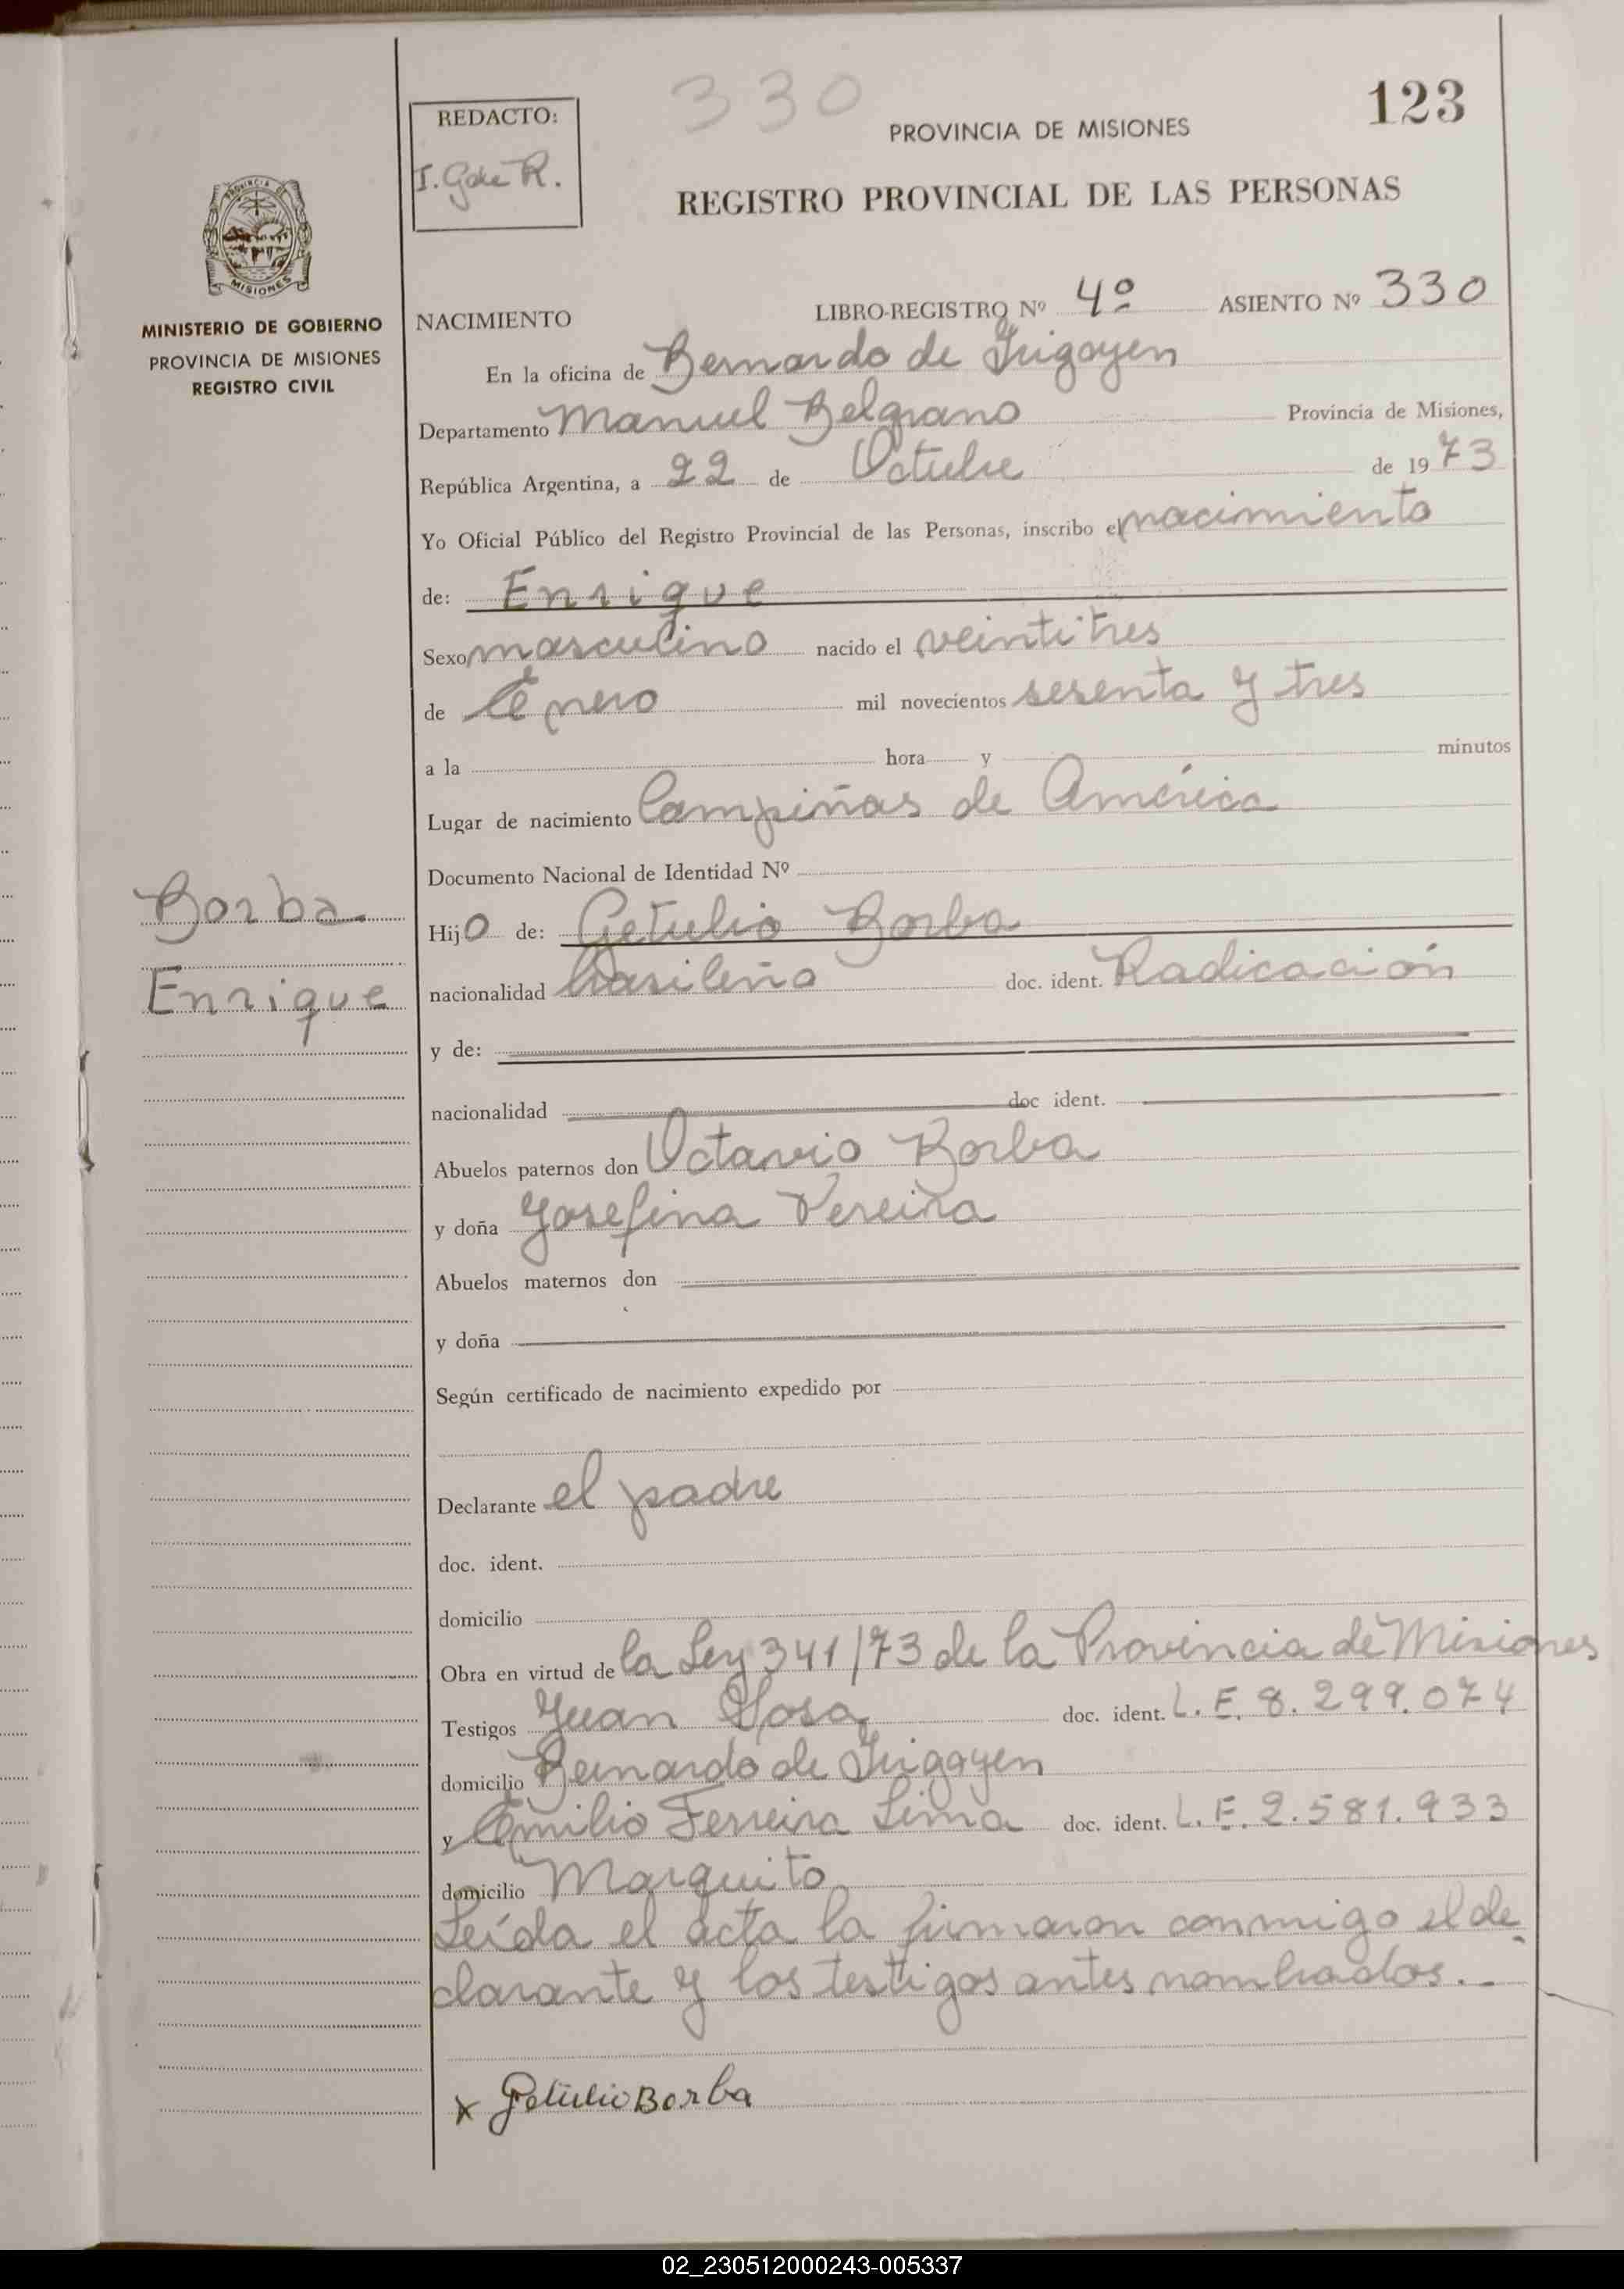 330
123
REDACTO:
PROVINCIA DE MISIONES
REGISTRO PROVINCIAL DE LAS PERSONAS
PROVINCIA DE
MISIONES
MINISTERIO DE GOBIERNO
PROVINCIA DE MISIONES
REGISTRO CIVIL
NACIMIENTO LIBRO-REGISTRO Nº 4º ASIENTO Nº 330
En la oficina de Bernardo de Irigoyen
Departamento Manuel Belgrano Provincia de Misiones,
República Argentina, a 22 de Octubre de 1973
Yo Oficial Público del Registro Provincial de las Personas, inscribo el nacimiento
de: Enrique
Sexo masculino nacido el veintitres
de Enero mil novecientos sesenta y tres
a la hora y minutos
Lugar de nacimiento Campiñas de América
Documento Nacional de Identidad Nº
Borba
Hijo de: Getulio Borba
Enrique
nacionalidad brasileña doc. ident. Radicación
y de:
nacionalidad doc ident.
Abuelos paternos don Octavio Borba
y doña Josefina Pereira
Abuelos maternos don
y doña
Según certificado de nacimiento expedido por
Declarante el padre
doc. ident.
domicilio
Obra en virtud de la Ley 341/73 de la Provincia de Misiones
Testigos Juan Sosa doc. ident. L.E. 8.299.074
domicilio Bernardo de Irigoyen
y Emilio Ferreira Lima doc. ident. L.E. 2.581.933
domicilio Marquito
Leída el acta la firmaron conmigo el de-
clarante y los testigos antes nombrados.-
x Getulio Borba
02_230512000243-005337